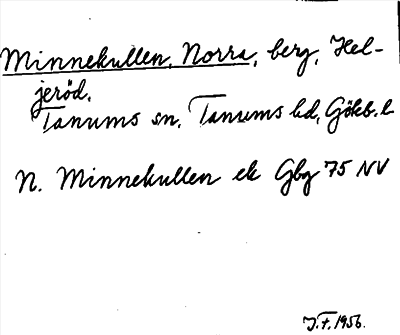 Minnekullen, Norra, berg, Hel-
jeröd.
Tanums sn, Tanums hd, Gökb. l
N. Minnekullen ek Gbg 75 NV
J.F. 1956.